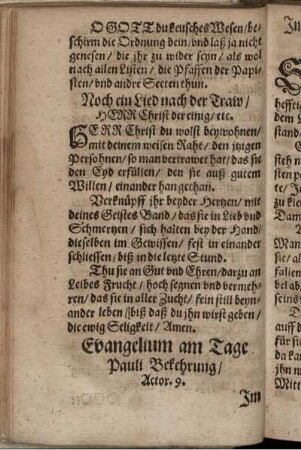 O GOTT du keusches Wesen/be-
schirm die Ordnung dein/vnd laß ja nicht
genesen/ die jhr zu wider seyn/ als wol
nach allen Listen/ die Pfaffen der Papi-
sten/ vnd andre Secten thun.
Noch ein Lied nach der Traw/
HERR Christ der einig/ etc.
HERR Christ du wolst beywohnen/
mit deinem weisen Raht/ den jtzigen
Persohnen/ so man vertrawet hat/ das sie
den Eyd erfüllen/ den sie auß gutem
Willen/ einander han gethan.
Verknüpff jhr beyder Hertzen/ mit
deines Geistes Band/ das sie in Lieb vnd
Schmertzen/ sich halten bey der Hand/
dieselben im Gewissen/ fest in einander
schliessen/ biß in die letzte Stund.
Thu sie an Gut vnd Ehren/ darzu an
Leibes Frucht/ hoch segnen vnd vermeh-
ren/ das sie in aller Zucht/ fein still beyn-
ander leben/ biß daß du jhn wirst geben/
die ewig Seligkeit/ Amen.
Evangelium am Tage
Pauli Bekehrung/
Actor. 9.
Im